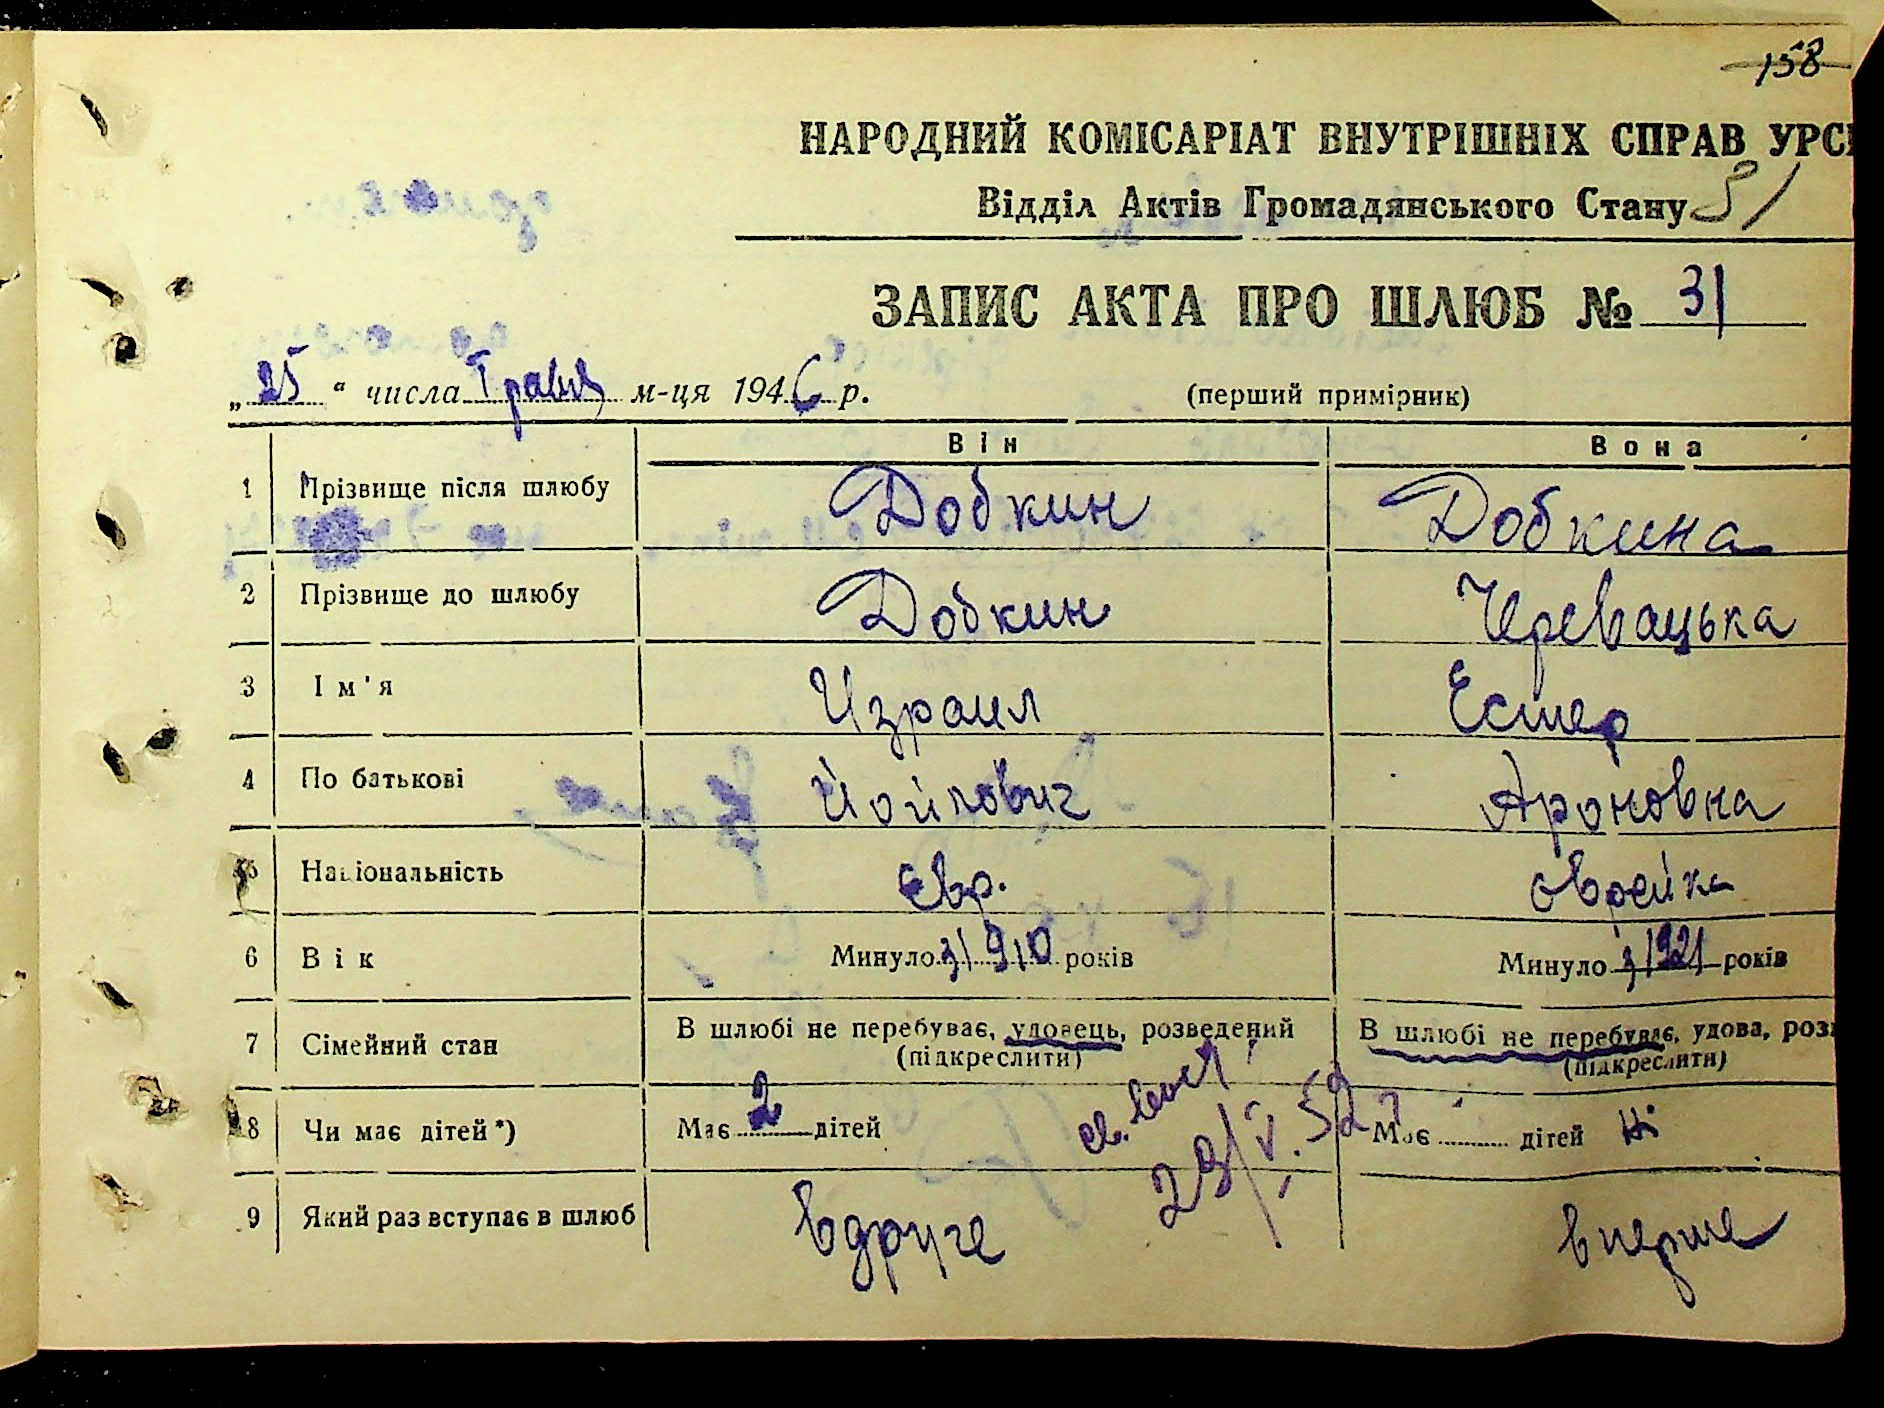 158
НАРОДНИЙ КОМІСАРІАТ ВНУТРІШНІХ СПРАВ УРС
Відділ Актів Громадянського Стану 31
ЗАПИС АКТА ПРО ШЛЮБ № 31
„25“ числа Травня м-ця 1946 р. (перший примірник)
Він Вона
1 Прізвище після шлюбу Добкин Добкина
2 Прізвище до шлюбу Добкин Черевацька
3 Ім'я Израил Естер
4 По батькові Ароновна
5 Національність Євр. єврейка
6 Вік Минуло з 1910 років Минуло з 1921 років
7 Сімейний стан В шлюбі не перебуває, удовець, розведений В шлюбі не перебуває, удова, роз
(підкреслити) (підкреслити)
8 Чи має дітей*) Має 2 дітей Має дітей Ні
23/V.52
9 Який раз вступає в шлюб вдруге вперше